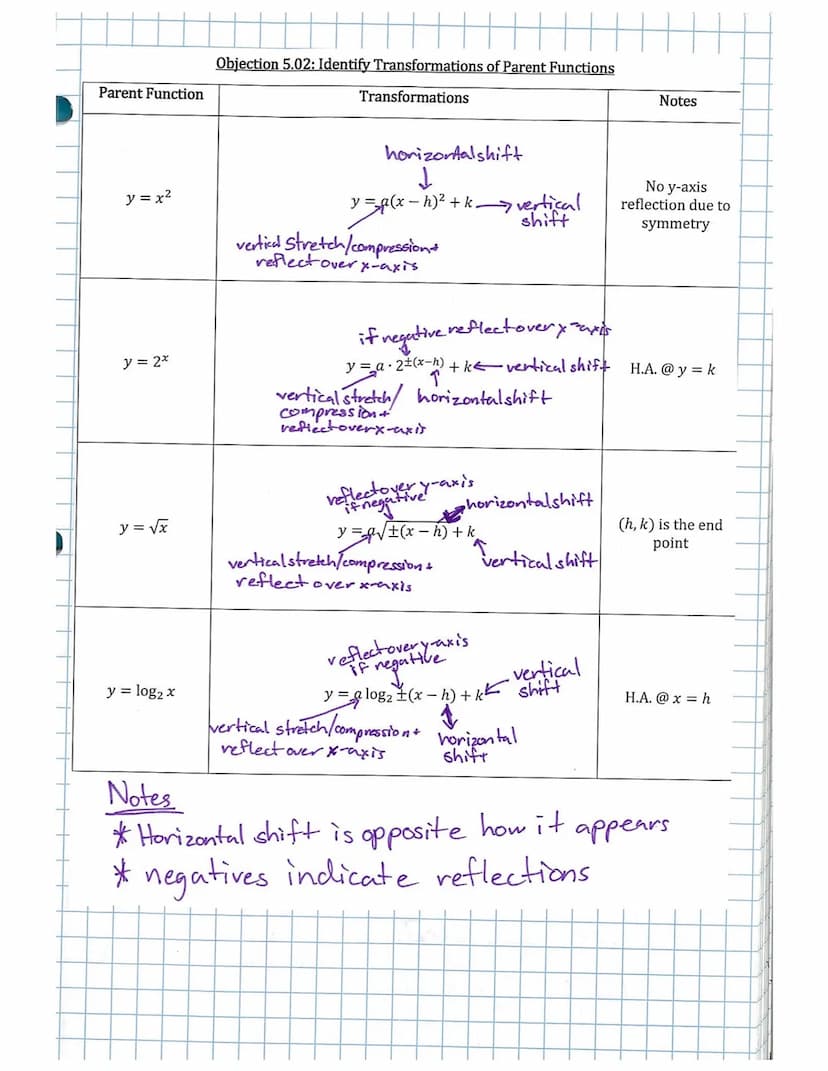 Objection 5.02: Identify Transformations of Parent Functions
Parent Function
Transformations
Notes
y = x²
horizontal shift
y = a(x − h)² + k
vertical
shift
vertical stretch/compression +
reflect over x-axis
No y-axis
reflection due to
symmetry
y = 2ˣ
if negative reflect over y-axis
y = a · 2^±(x−h) + k
vertical shift
vertical stretch/
compression +
reflect over x-axis
horizontal shift
H.A. @ y = k
y = √x
reflect over y-axis
if negative
horizontal shift
y = a√±(x − h) + k
vertical stretch/compression +
reflect over x-axis
vertical shift
(h, k) is the end
point
y = log₂ x
reflect over y-axis
if negative
vertical
shift
y = a log₂ ±(x − h) + k
vertical stretch/compression +
reflect over x-axis
horizontal
shift
H.A. @ x = h
Notes
* Horizontal shift is opposite how it appears
* negatives indicate reflections